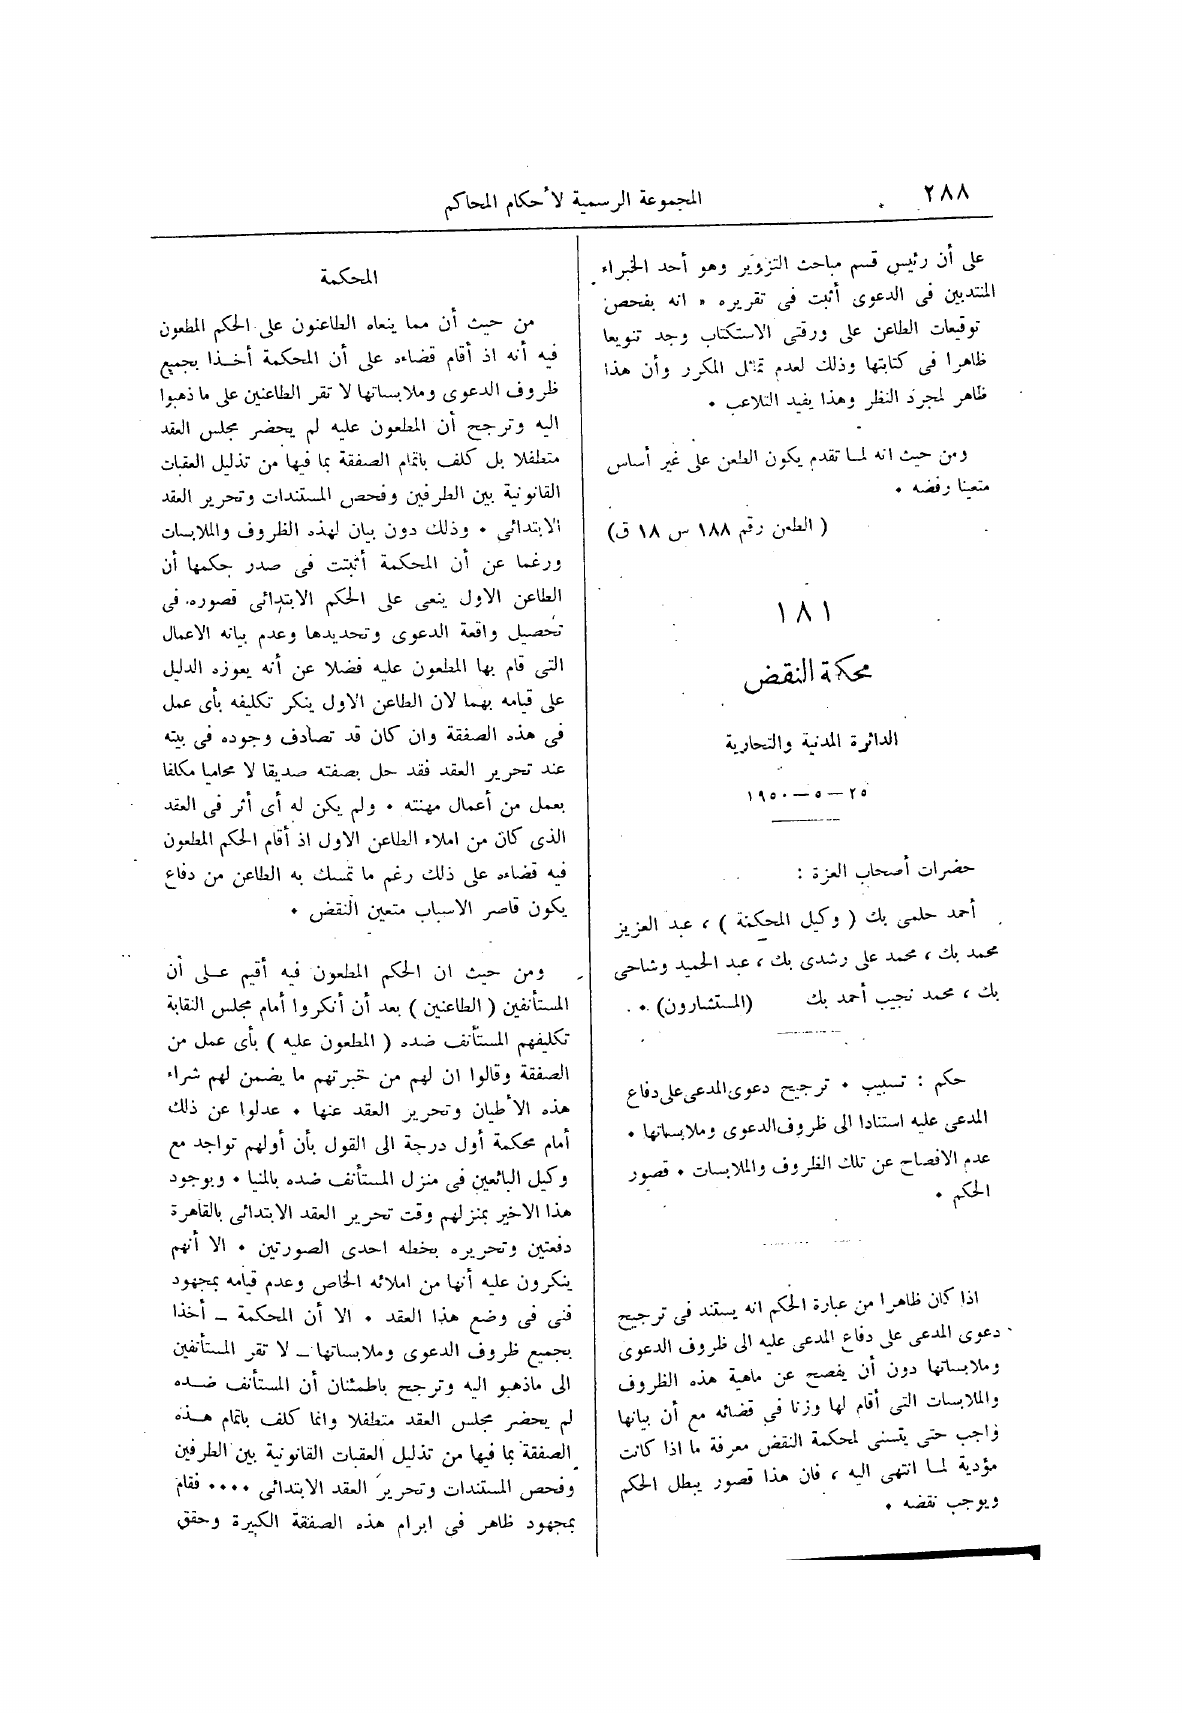 ٢٨٨
المجموعة الرسمية لأحكام المحاكم
على أن رئيس قسم مباحث التزوير وهو أحد الخبراء
المنتدبين فى الدعوى أثبت فى تقريره « انه بفحص
توقيعات الطاعن على ورقتى الاستكتاب وجد تنويعا
ظاهرا فى كتابتها وذلك لعدم تماثل المكرر وأن هذا
ظاهر لمجرد النظر وهذا يفيد التلاعب .
ومن حيث انه لما تقدم يكون الطعن على غير أساس
متعينا رفضه .
( الطعن رقم ١٨٨ س ١٨ ق)
١٨١
محكمة النقض
الدائرة المدنية والتجارية
٢٥ – ٥ – ١٩٥٠
حضرات أصحاب العزة :
أحمد حلمى بك ( وكيل المحكمة ) ، عبد العزيز
محمد بك ، محمد على رشدى بك ، عبد الحميد وشاحى
بك ، محمد نجيب أحمد بك (المستشارون) .
حكم : تسبيب . ترجيح دعوى المدعى على دفاع
المدعى عليه استنادا الى ظروف الدعوى وملابساتها .
عدم الافصاح عن تلك الظروف والملابسات . قصور
الحكم .
اذا كان ظاهرا من عبارة الحكم انه يستند فى ترجيح
دعوى المدعى على دفاع المدعى عليه الى ظروف الدعوى
وملابساتها دون أن يفصح عن ماهية هذه الظروف
والملابسات التى أقام لها وزنا فى قضائه مع أن بيانها
واجب حتى يتسنى لمحكمة النقض معرفة ما اذا كانت
مؤدية لما انتهى اليه ، فان هذا قصور يبطل الحكم
ويوجب نقضه .
المحكمة
من حيث أن مما ينعاه الطاعنون على الحكم المطعون
فيه أنه اذ أقام قضاءه على أن المحكمة أخذا بجميع
ظروف الدعوى وملابساتها لا تقر الطاعنين على ما ذهبوا
اليه وترجح أن المطعون عليه لم يحضر مجلس العقد
متطفلا بل كلف باتمام الصفقة بما فيها من تذليل العقبات
القانونية بين الطرفين وفحص المستندات وتحرير العقد
الابتدائى . وذلك دون بيان لهذه الظروف والملابسات
ورغما عن أن المحكمة أثبتت فى صدر حكمها أن
الطاعن الاول ينعى على الحكم الابتدائى قصوره فى
تحصيل واقعة الدعوى وتحديدها وعدم بيانه الاعمال
التى قام بها المطعون عليه فضلا عن أنه يعوزه الدليل
على قيامه بهما لان الطاعن الاول ينكر تكليفه بأى عمل
فى هذه الصفقة وان كان قد تصادف وجوده فى بيته
عند تحرير العقد فقد حل بصفته صديقا لا محاميا مكلفا
بعمل من أعمال مهنته . ولم يكن له أى أثر فى العقد
الذى كان من املاء الطاعن الاول اذ أقام الحكم المطعون
فيه قضاءه على ذلك رغم ما تمسك به الطاعن من دفاع
يكون قاصر الاسباب متعين النقض .
ومن حيث ان الحكم المطعون فيه أقيم على أن
المستأنفين ( الطاعنين ) بعد أن أنكروا أمام مجلس النقابة
تكليفهم المستأنف ضده ( المطعون عليه ) بأى عمل من
الصفقة وقالوا ان لهم من خبرتهم ما يضمن لهم شراء
هذه الأطيان وتحرير العقد عنها . عدلوا عن ذلك
أمام محكمة أول درجة الى القول بأن أولهم تواجد مع
وكيل البائعين فى منزل المستأنف ضده بالمنيا . وبوجود
هذا الاخير بمنزلهم وقت تحرير العقد الابتدائى بالقاهرة
دفعتين وتحريره بخطه احدى الصورتين . الا أنهم
ينكرون عليه أنها من املائه الخاص وعدم قيامه بمجهود
فنى فى وضع هذا العقد . الا أن المحكمة – أخذا
بجميع ظروف الدعوى وملابساتها – لا تقر المستأنفين
الى ماذهبو اليه وترجح باطمئنان أن المستأنف ضده
لم يحضر مجلس العقد متطفلا وانما كلف باتمام هذه
الصفقة بما فيها من تذليل العقبات القانونية بين الطرفين
وفحص المستندات وتحرير العقد الابتدائى .... فقام
بمجهود ظاهر فى ابرام هذه الصفقة الكبيرة وحقق